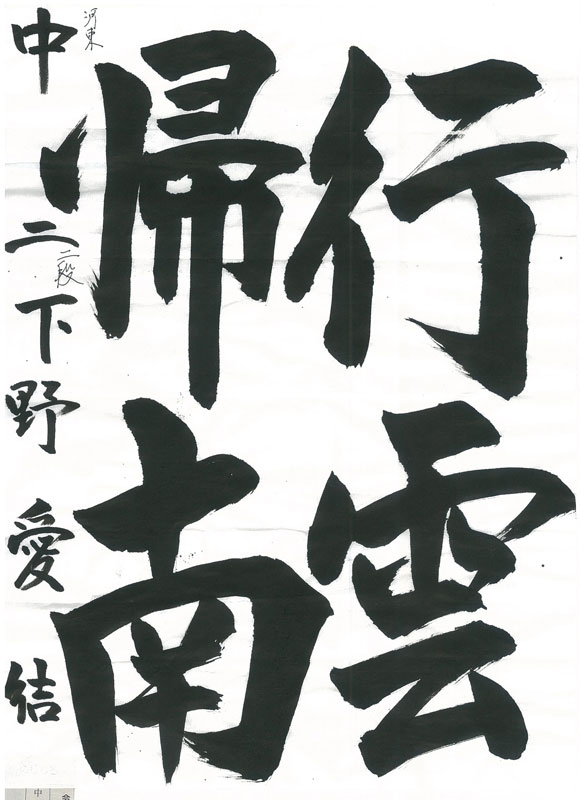 行雲
帰南
河東
中二 下野愛結
二段
中